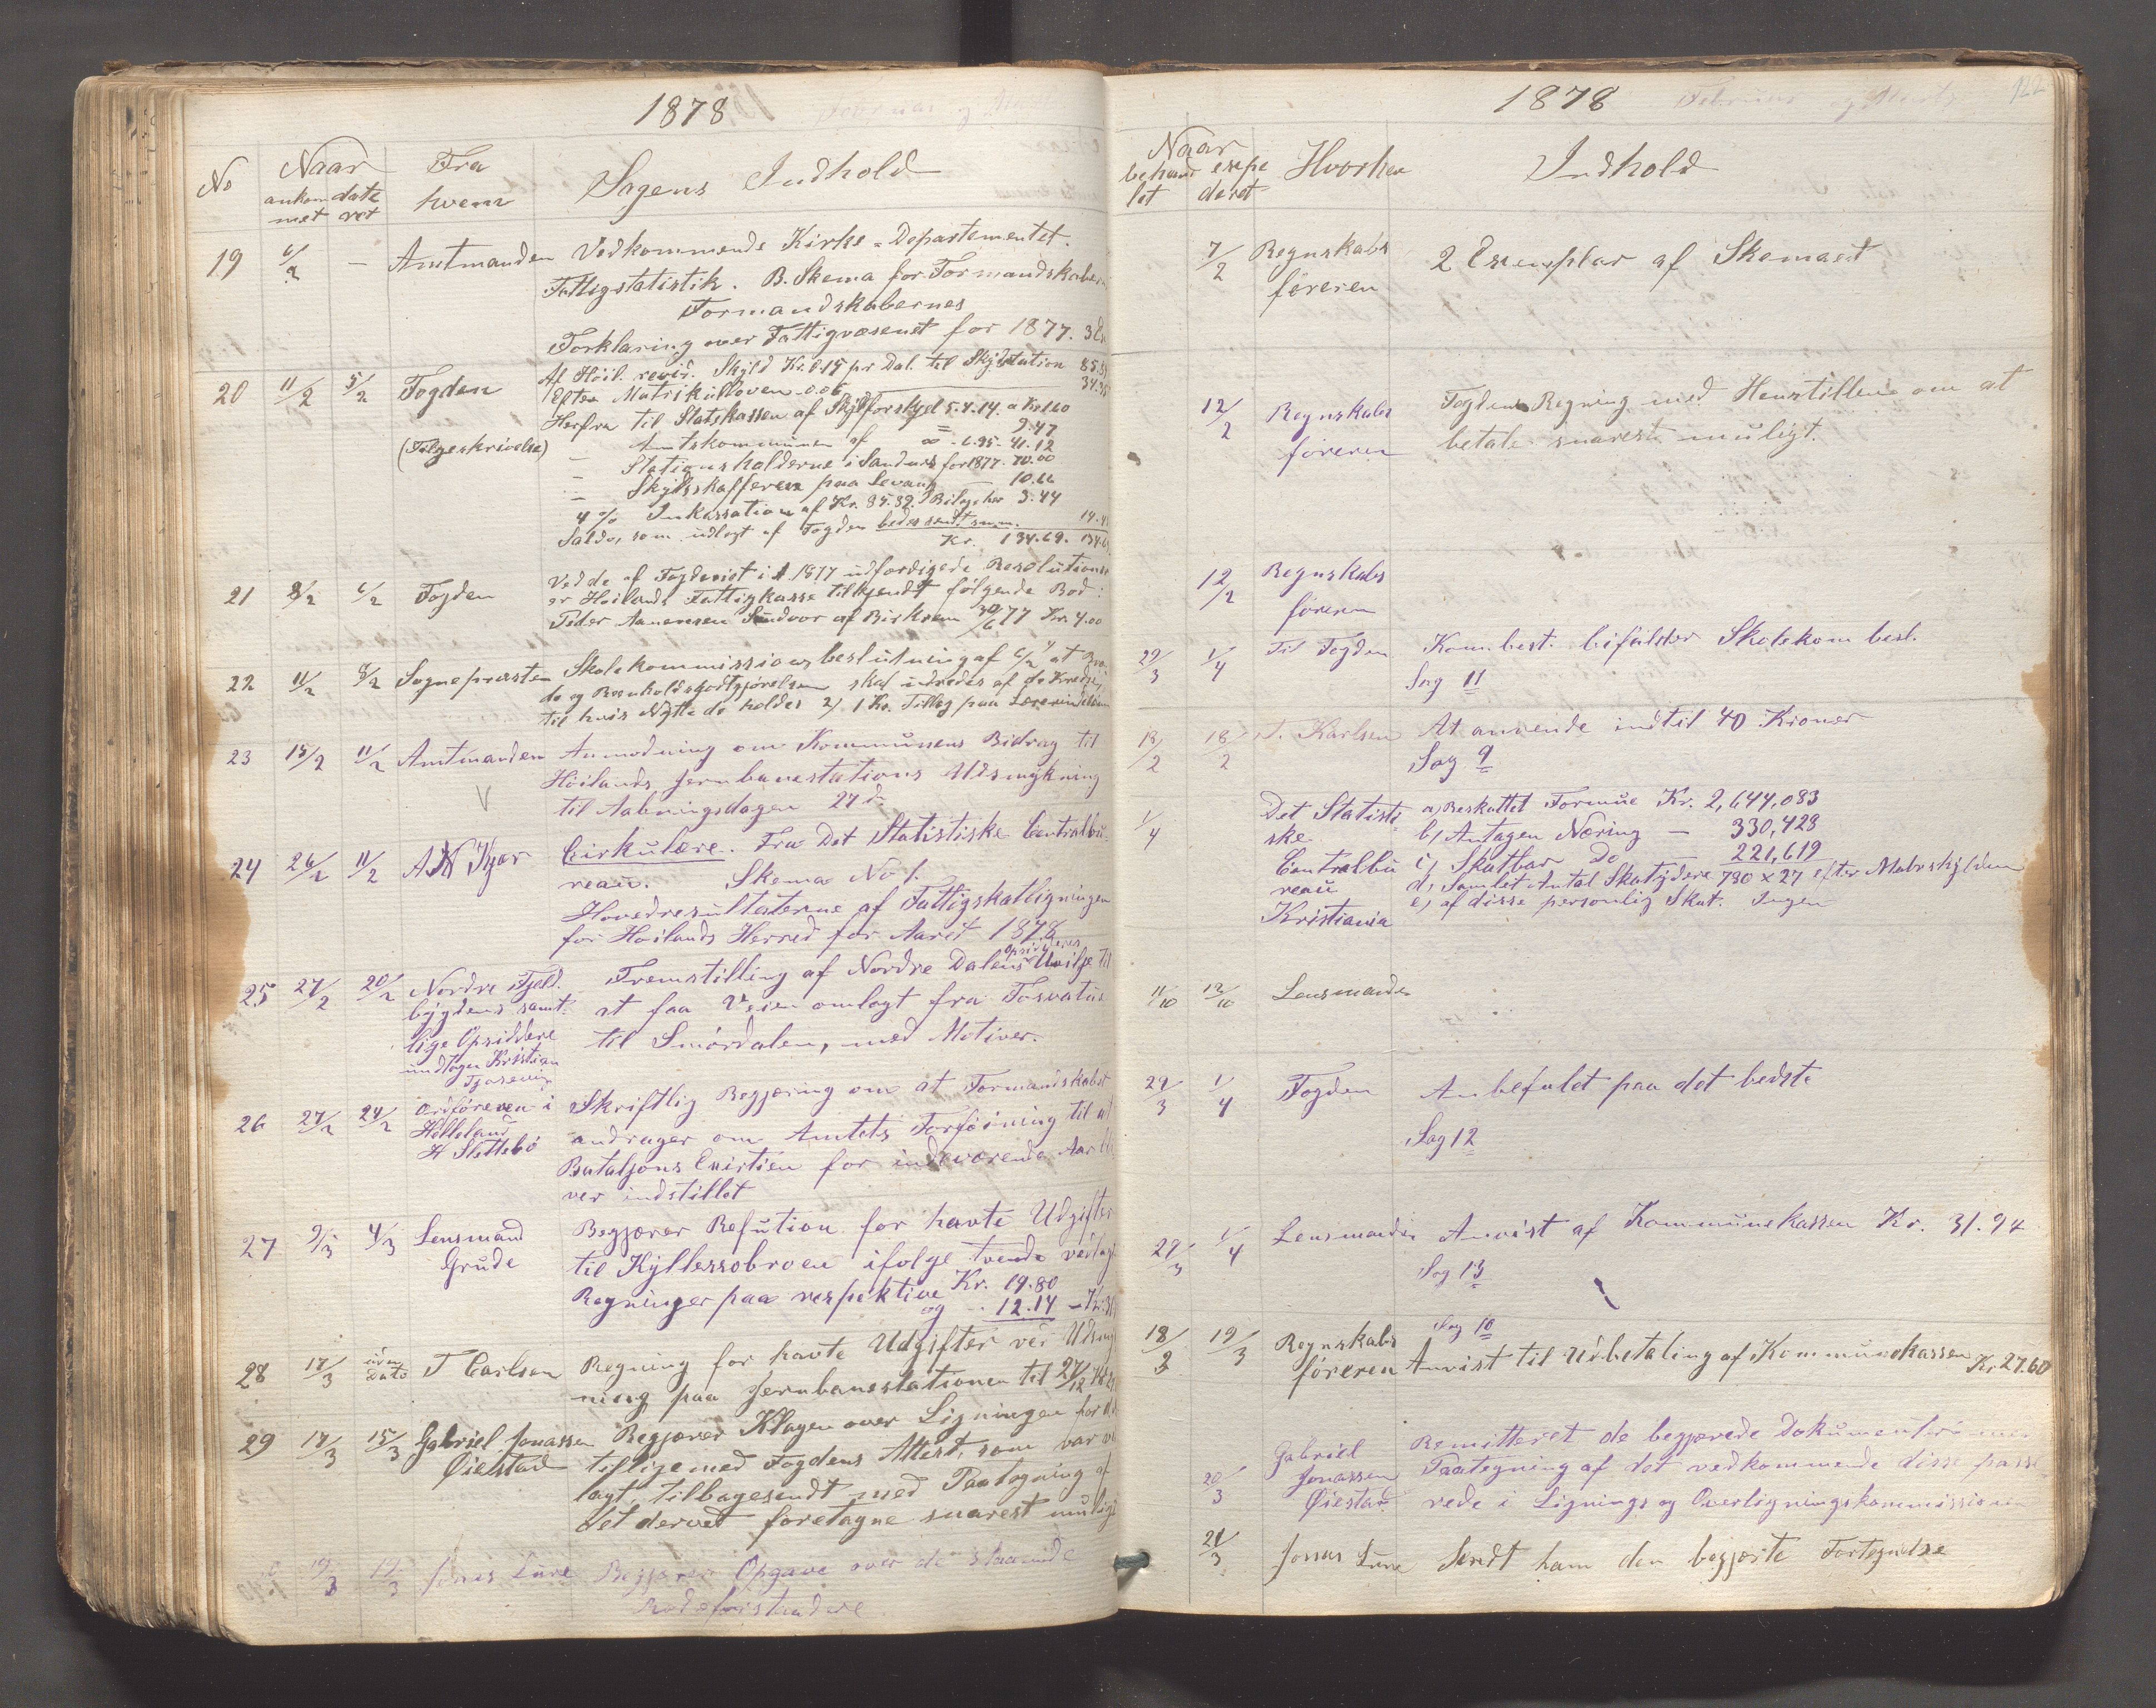 1878
No
Naar
ankommet
datеret
Fra hvem
Sagens Indhold
19
6/2
-
Amtmanden
Vedkommende Kirke-Departementet.
Fattigstatistik. B. Skema for Formandskaber
Formandskabernes
Forklaring over Fattigvæsenet for 1877. 3
20
11/2
5/2
Fogden
(Følgeskrivelse)
Af Höil. revid. Skyld Kr. 0.15 pr Dal. til Skydsstation 85.
Efter Matrikulloven 0.06 34.
Herfra til Statskassen af Skydsforskyd 5.4.14. a Kr 1.60 9.47
- Amtskommunen af 6.95. 41.12
- Stationsholderne i Sandnes for 1877. 70.00
- Skydsskafferen paa Levang 10.66
4% Inkassation af Kr. 85.82. Bilag her 3.44
Saldo, som udlagt af Fogden bedes sendt 14.
Kr. 134.69.
21
8/2
6/2
Fogden
Ved de af Fogderiet i A. 1877 udfærdigede Resolutioner
er Høilands Fattigkasse tilkjendt følgende Bod:
Peder Aanensen af Birkrem 30/6 77 Kr. 4.00
22
11/2
8/2
Sognepræsten
Skolekommissions beslutning af 6/2 at
de og Brænholdsgodtgjørelsen skal udredes af de Kredse,
til hvis Nytte de holdes 2) 1 Kr. Tillæg paa
23
15/2
11/2
Amtmanden
Anmodning om Kommunens Bidrag til
Höilands Jernbanestations Udsmykning
til Aabningsdagen 27 d.
24
26/2
11/2
A N Kjær
Cirkulære. Fra Det Statistiske Centralbu-
reau. Skema No 1.
Hovedresultaterne af Fattigskatligningen
for Høilands Herred for Aaret 1878
25
27/2
20/2
Nordre Fjeld-
bygdens samt-
lige Opsiddere
undtagen Kristian
Fremstilling af Nordre Dalens Opsidderes til
at faa Veien omlagt fra
til Smördalen, med Motiver.
26
27/2
24/2
Ordføreren i
Helleland
H Slettebö
Skriftlig Begjæring om at Formandskabet
andrager om Amtets Forföining til at
Bataljons for indeværende Aar
ver indstillet
27
9/3
4/3
Lensmand
Grude
Begjærer Refution for havte Udgifter
til Kyllessobroen ifølge tvende vedlagte
Regninger paa respektive Kr. 19.80
og - 12.14
28
17/3
uden
Dato
T Carlsen
Regning for havte Udgifter ved
ning paa Jernbanestationen til
29
17/3
15/3
Gabriel Jonassen
Øiestad
Begjærer Klagen over Ligningen
tilligemed Fogdens Attest, som var
lagt tilbagesendt med Paategning af
det derved foretagne snarest muligt
19/3
19/3
Jonas Lure
Begjærer Opgave over de staaende
Rodeforstandere
1878
122
Naar
behandlet
expederet
Hvorhen
Indhold
7/2
Regnskabs
föreren
2 Exemplar af Skemaet
12/2
Regnskabs
föreren
Fogdens Regning med Henstillen om at
betale snarest muligt.
12/2
Regnskabs
föreren
29/3
1/4
Til Fogden
Kom.best. bifalder Skolekom besl.
Sag 11
18/2
18/2
T. Karlsen
At anvende indtil 40 Kroner
Sag 9
1/4
Det Statisti-
ske
Centralbu
reau
Kristiania
a) Beskattet Formue Kr. 2,644,083
b) Antagen Næring - 330,428
c) Skatbar Do - 221,619
d) Samlet Antal Skatydere 730 x 27 efter Matrskylden
e) af disse personlig Skat. Ingen
11/10
12/10
Lensmanden
29/3
1/4
Fogden
Anbefalet paa det bedste
Sag 12
29/3
1/4
Lensmanden
Anvist af Kommunekassen Kr. 31.94
Sag 13
18/3
19/3
Regnskabs
föreren
Sag 10
Anvist til Udbetaling af Kommunekassen Kr 27.60
20/3
Gabriel
Jonassen
Øiestad
Remitteret de begjærede Dokumenter
Paategning af det vedkommende disse passe-
rede i Lignings og Overligningskommissionen
21/3
Jonas Lure
Sendt ham den begjærte Fortegnelse